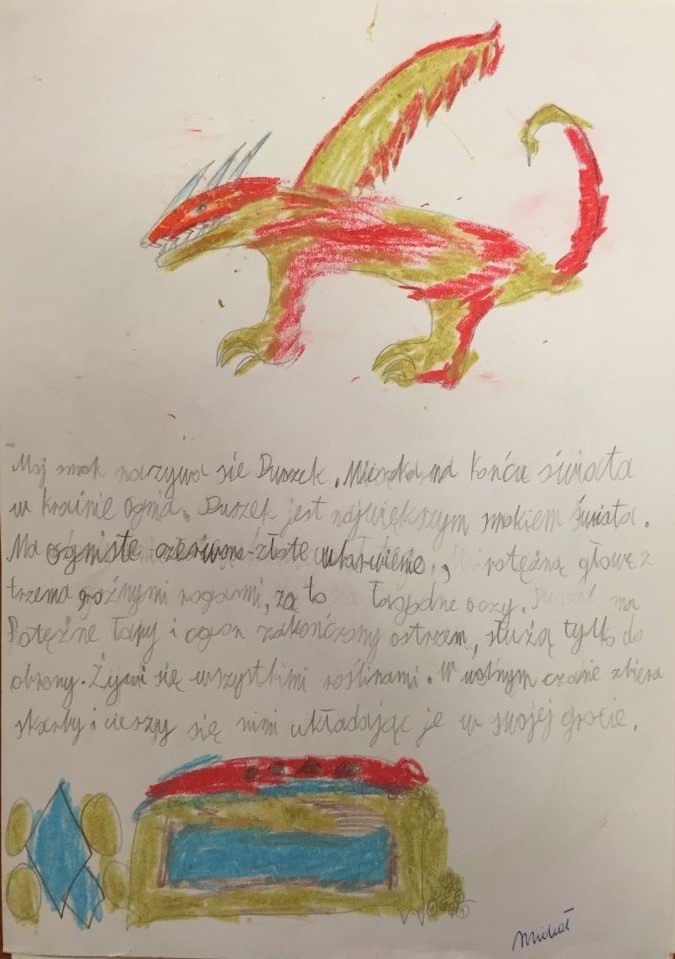 Mój smok nazywa sie Duszek. Mieszka na końcu świata
w krainie ognia. Duszek jest największym smokiem świata.
Ma ogniste czerwono-złote ubarwienie, potężną głowę z
trzema groźnymi rogami, za to łagodne oczy. ma
Potężne łapy i ogon zakończony ostrzem, służą tylko do
obrony. Żywi się wszystkimi roślinami. W wolnym czasie zbiera
skarby i cieszy się nimi układając je w swojej grocie.
Michał